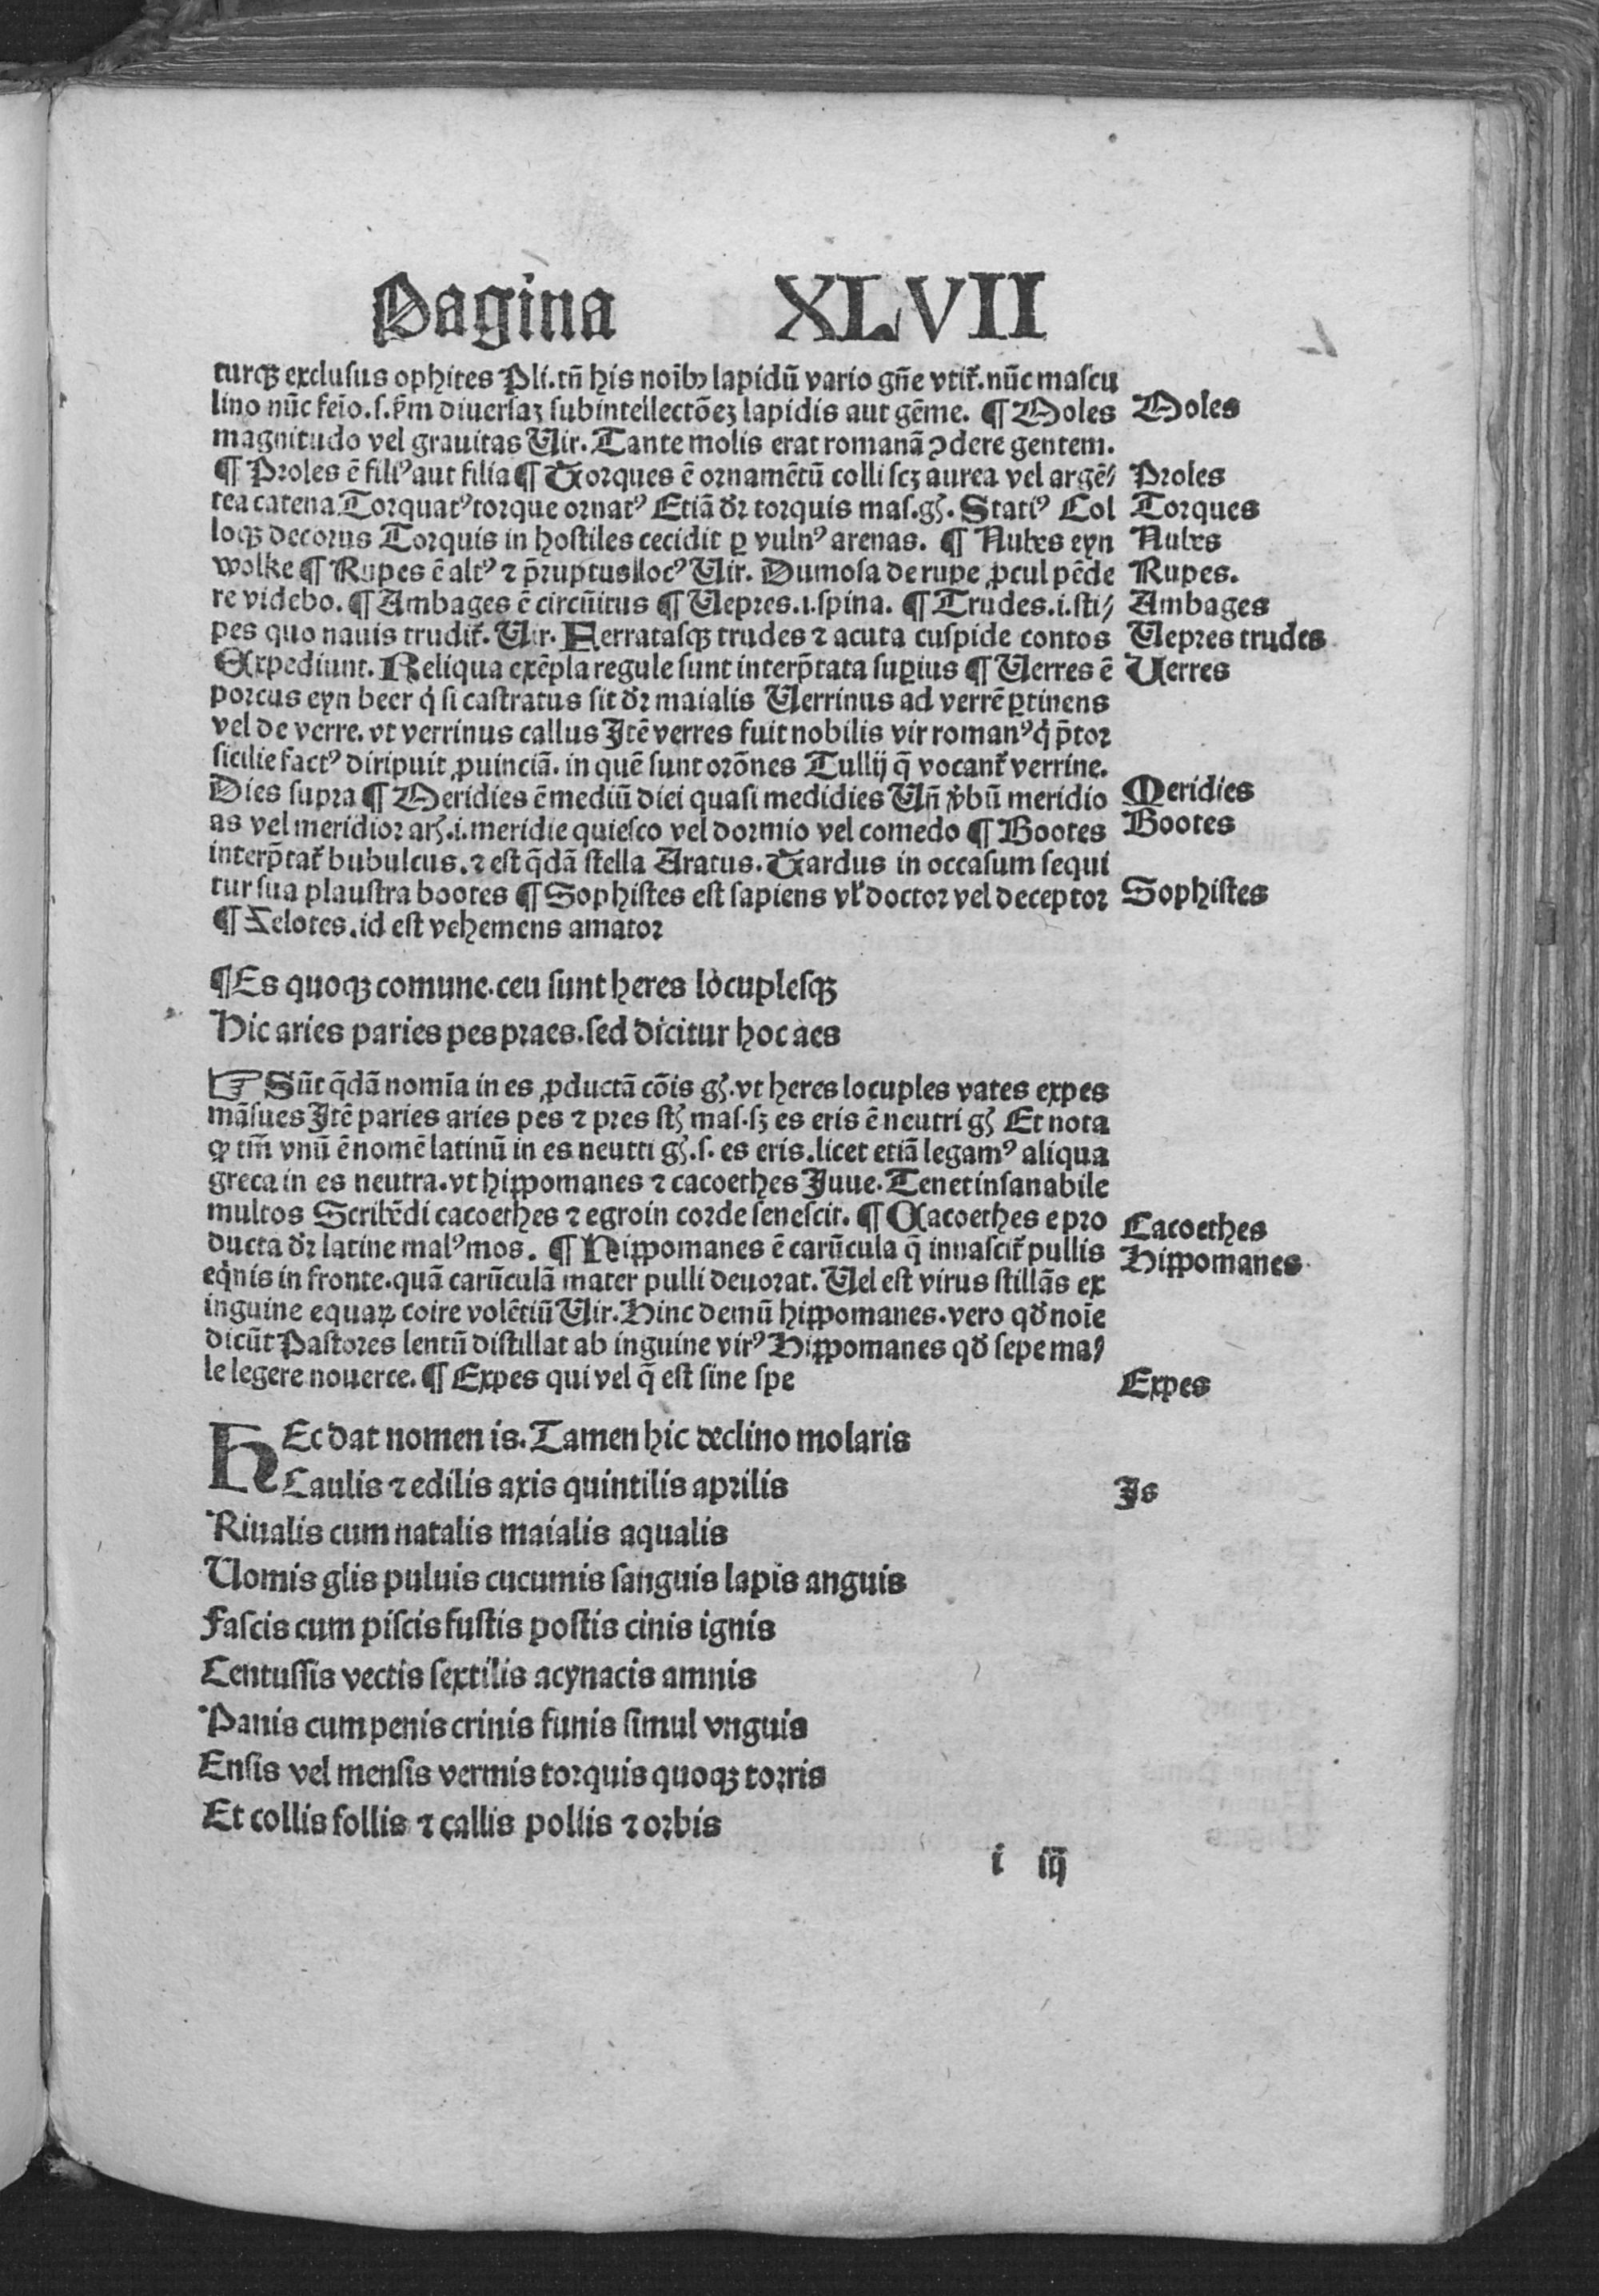 Pagina XLVII
turqꝫ exclusus ophites Pli. tn̄ his noīb⁹ lapidū vario gn̄e vtit᷑. nūc mascu
lino nūc feīo. s. ẜm diuersaꝫ subintellectōeꝫ lapidis aut gēme. ¶ Moles
Moles
magnitudo vel grauitas Uir. Tante molis erat romanā ↄdere gentem.
¶ Proles ē fili⁹ aut filia ¶ Torques ē ornamētū colli scꝫ aurea vel argē⸗
Proles
tea catena Torquat⁹ torque ornat⁹ Etiā dr̄ torquis mas. gꝭ. Stati⁹ Col
Torques
loqꝫ decorus Torquis in hostiles cecidit ꝑ vuln⁹ arenas. ¶ Nubes eyn
Nubes
wolke ¶ Rupes ē alt⁹ ⁊ p̄ruptus loc⁹ Uir. Dumosa de rupe ꝓcul pēde
Rupes.
re videbo. ¶ Ambages ē circūitus ¶ Uepres .i. spina. ¶ Trudes .i. sti⸗
Ambages
pes quo nauis trudit᷑. Uir. Ferratasqꝫ trudes ⁊ acuta cuspide contos
Uepres trudes
Expediunt. Reliqua exēpla regule sunt interp̄tata suꝑius ¶ Uerres ē
Uerres
porcus eyn beer q̇ si castratus sit dr̄ maialis Uerrinus ad verrē ꝑtinens
vel de verre. vt verrinus callus Itē verres fuit nobilis vir roman⁹ q̇ p̄tor
sicilie fact⁹ diripuit ꝓuinciā. in quē sunt orōnes Tullij q̄ vocant᷑ verrine.
Dies supra ¶ Meridies ē mediū diei quasi medidies Un̄ v̄bū meridio
Meridies
as vel meridior arꝭ .i. meridie quiesco vel dormio vel comedo ¶ Bootes
Bootes
interp̄tat᷑ bubulcus. ⁊ est q̄dā stella Aratus. Tardus in occasum sequi
tur sua plaustra bootes ¶ Sophistes est sapiens vl̓ doctor vel deceptor
Sophistes
¶ Zelotes. id est vehemens amator
¶ Es quoqꝫ comune. ceu sunt heres locuplesqꝫ
Hic aries paries pes praes. sed dicitur hoc aes
☞ Sūt q̄dā nomīa in es ꝓductā cōis gꝭ. vt heres locuples vates expes
māsues Itē paries aries pes ⁊ pres st̄ꝭ mas. sꝫ es eris ē neutri gꝭ Et nota
ꝙ tm̄ vnū ē nomē latinū in es neutri gꝭ .s. es eris. licet etiā legam⁹ aliqua
greca in es neutra. vt hippomanes ⁊ cacoethes Juue. Tenet insanabile
multos Scribēdi cacoethes ⁊ egro in corde senescit. ¶ Cacoethes e pro
Cacoethes
ducta dr̄ latine mal⁹ mos. ¶ Hippomanes ē carūcula q̄ innascit᷑ pullis
Hippomanes
eq̇nis in fronte. quā carūculā mater pulli deuorat. Uel est virus stillās ex
inguine equaꝝ coire volētiū Uir. Hinc demū hippomanes. vero qd̄ noīe
dicūt Pastores lentū distillat ab inguine vir⁹ Hippomanes qd̄ sepe ma⸗
le legere nouerce. ¶ Expes qui vel q̄ est sine spe
Expes
HEc dat nomen is. Tamen hic declino molaris
Caulis ⁊ edilis axis quintilis aprilis
Is
Riualis cum natalis maialis aqualis
Uomis glis puluis cucumis sanguis lapis anguis
Fascis cum piscis fustis postis cinis ignis
Centussis vectis sextilis acynacis amnis
Panis cum penis crinis funis simul vnguis
Ensis vel mensis vermis torquis quoqꝫ torris
Et collis follis ⁊ callis pollis ⁊ orbis
i iiij